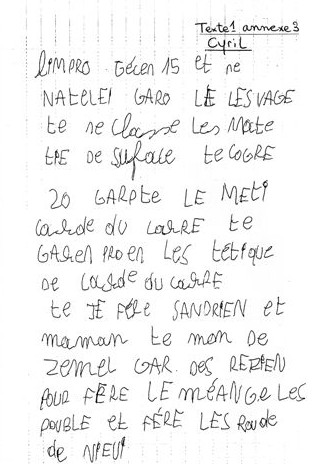 Texte 1 annexe 3
Cyril
limpro . Gécen 15 et ne
NATELEI GARO LE LESVAGE
te ne classe Les Mate
tRE De surface te COGRE
20 GARpte LE METI
carde du CARRE te
GAREN PRO en Les tétique
De carde du CARRE
te JE Fére SANDRIEN et
maman te mon De
ZemeL GAR. Des REZIEN
POUR FÈRE LE MÉANGE LES
POUBLE et FÉRE LES Roude
de NIEUI